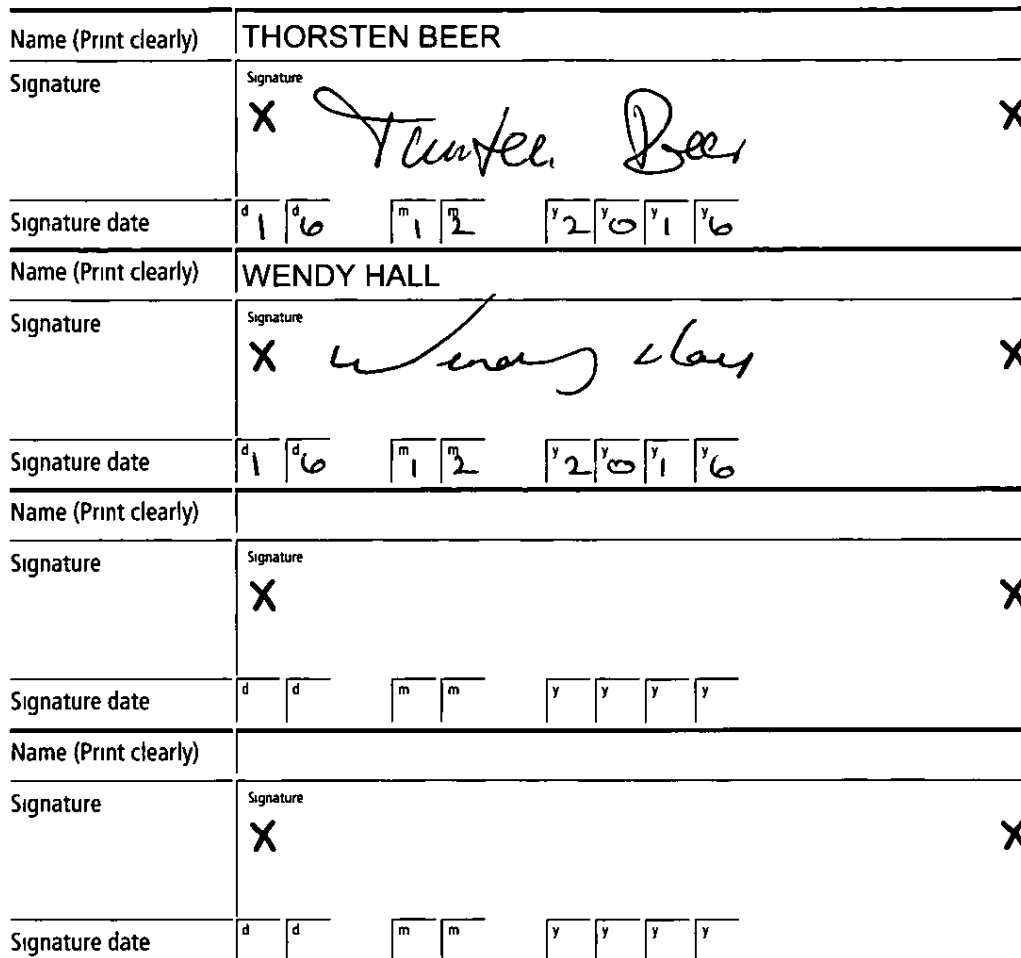 Name (Print clearly) THORSTEN BEER
Signature Signature
X Thorsten Beer X
Signature date d1 d6 m1 m2 y2 y0 y1 y6
Name (Print clearly) WENDY HALL
Signature Signature
X Wendy Hall X
Signature date d1 d6 m1 m2 y2 y0 y1 y6
Name (Print clearly)
Signature Signature
X X
Signature date d d m m y y y y
Name (Print clearly)
Signature Signature
X X
Signature date d d m m y y y y